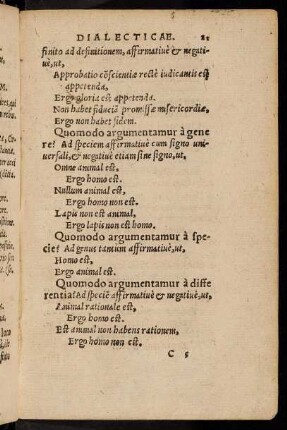 DIALECTICAE. 21
finito ad definitionem, affirmatiuè & negati-
uè, ut,
Approbatio cõscientiæ rectè iudicantis est
appetenda,
Ergo gloria est appetenda.
Non habet fiduciã promissæ misericordiæ,
Ergo non habet fidem.
Quomodo argumentamur à gene
re? Ad speciem affirmatiuè cum signo uni-
uersali, & negatiuè etiam sine signo, ut,
Omne animal est,
Ergo homo est.
Nullum animal est,
Ergo homo non est.
Lapis non est animal,
Ergo lapis non est homo.
Quomodo argumentamur à spe-
cie? Ad genus tantum affirmatiuè, ut,
Homo est,
Ergo animal est.
Quomodo argumentamur à differe
rentia? Ad speciẽ affirmatiuè & negatiuè, ut,
Animal rationale est,
Ergo homo est.
Est animal non habens rationem,
Ergo homo non est.
C 5